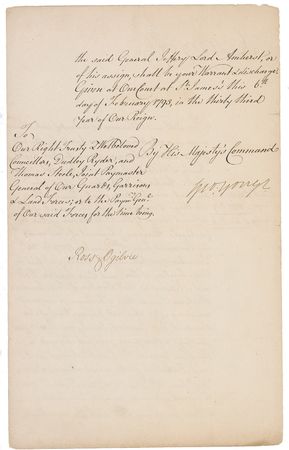 the said General Jeffery Lord Amherst, or
of his assign, shall be your Warrant & discharge
Given at Our Court at St. James's this 6th.
day of February 1793, in the thirty third
Year of Our Reign.
By His Majesty's Command
Geo: Yonge
To
Our Right Trusty & Wellbeloved
Councillors, Dudley Ryder, and
Thomas Steele, Joint Paymaster
General of Our Guards, Garrisons
& Land Forces; or to the Paymr. Genl.
of Our said Forces for the time being.
Ross & Ogilvie